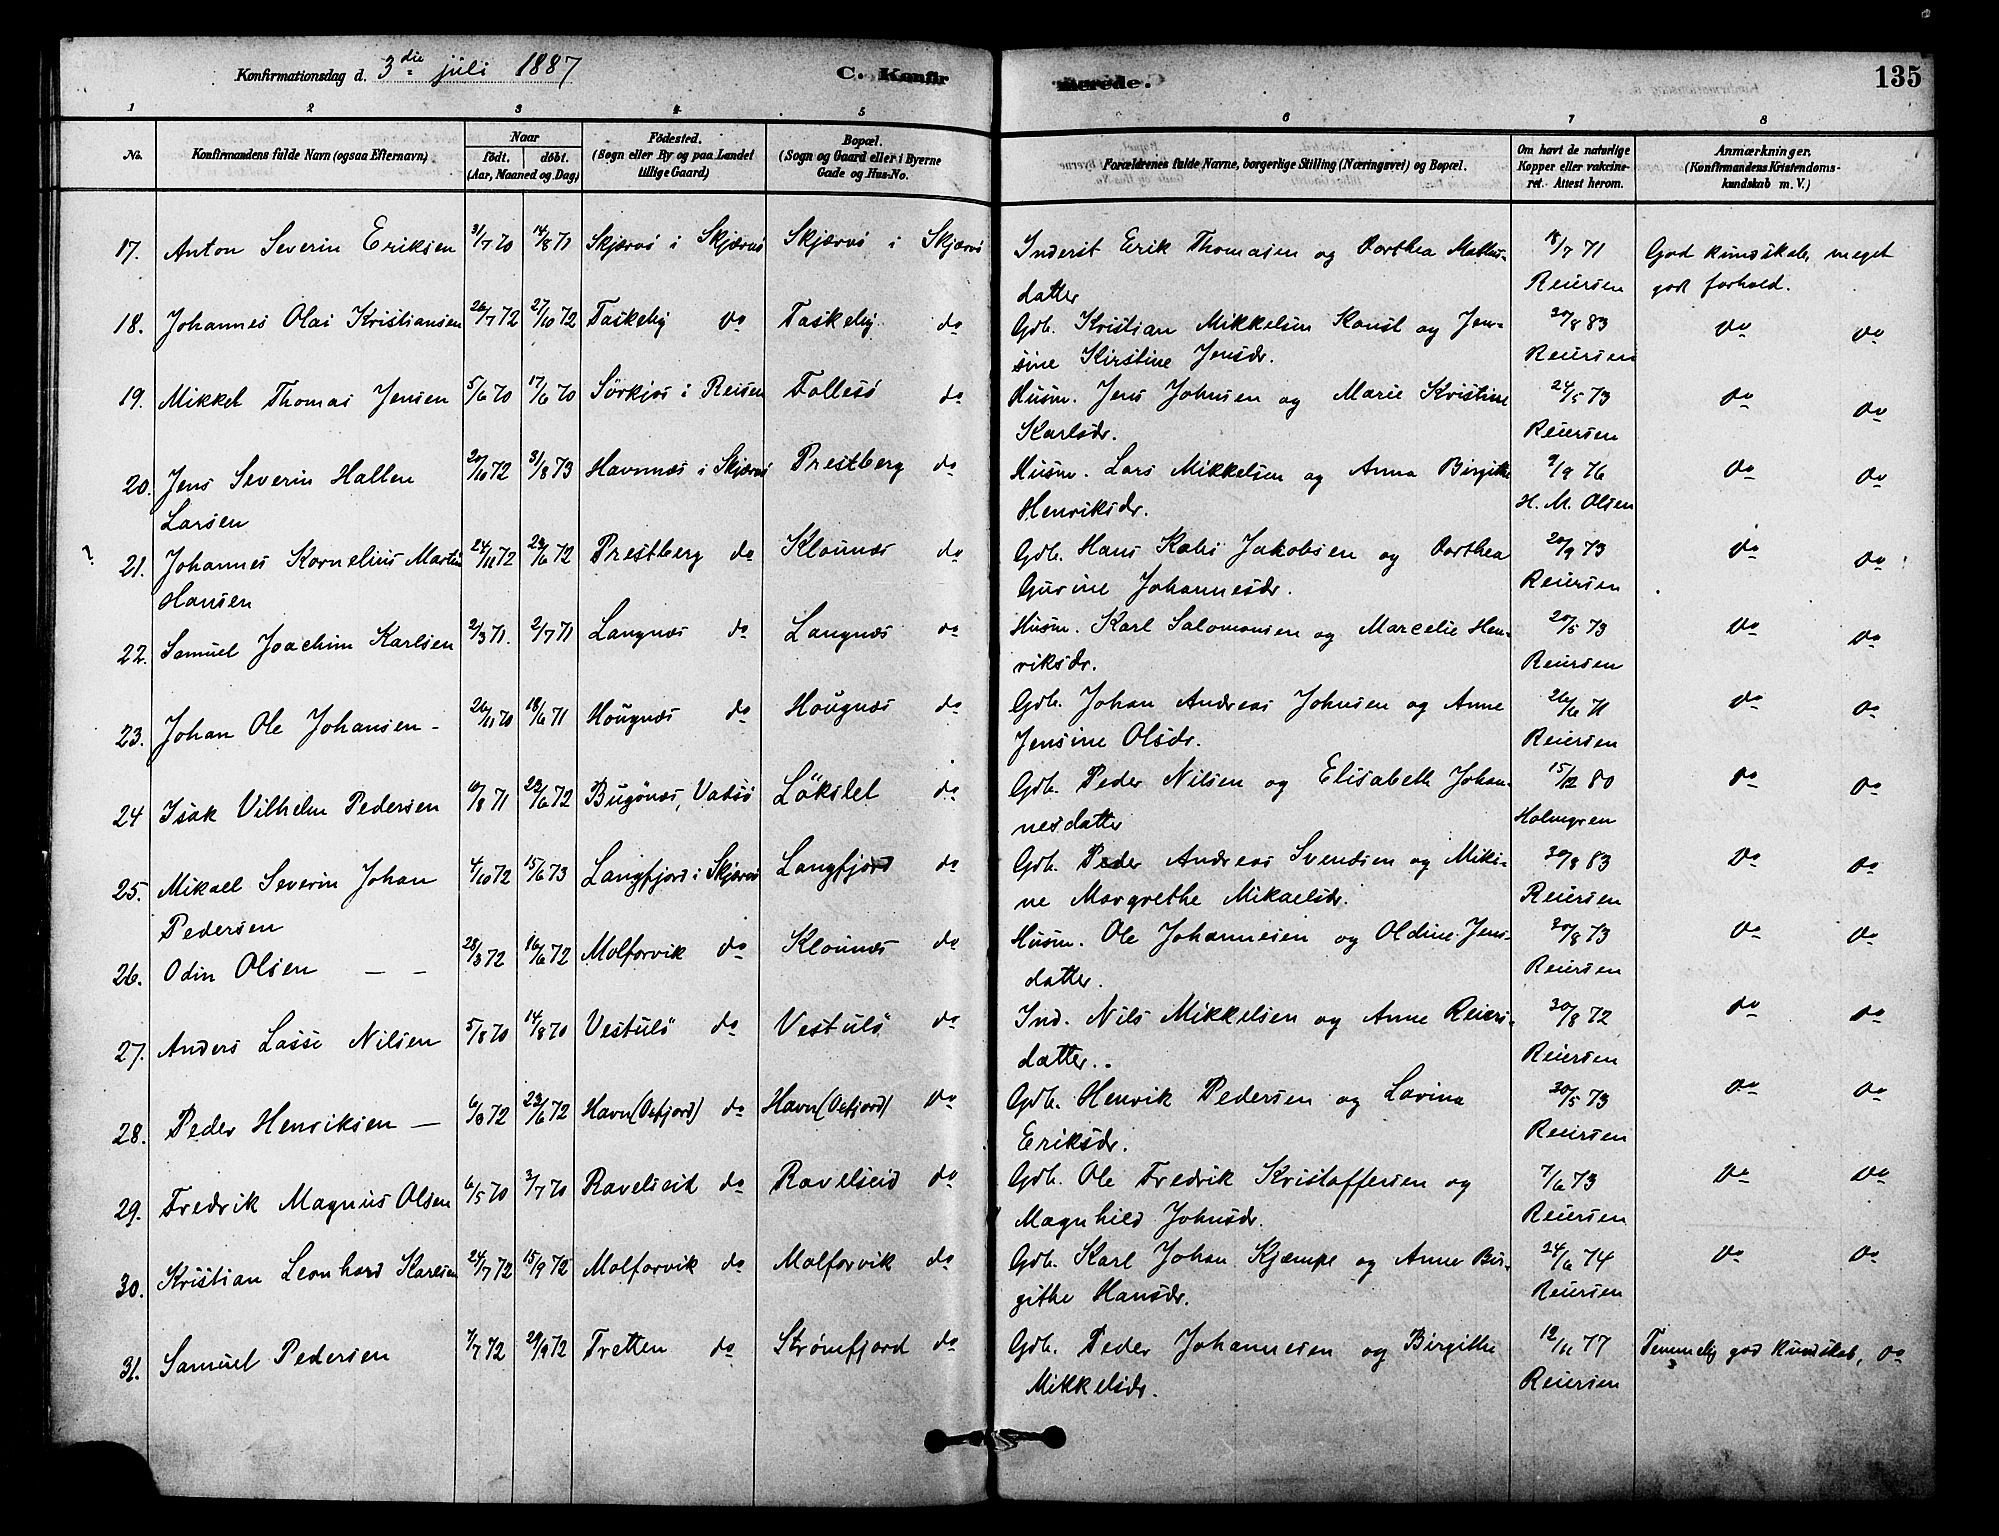 Konfirmationsdag d. 3die juli 1887 C. Konfirmerede. 135
1 2 3 4 5 6 7 8
No. Konfirmandens fulde Navn (ogsaa Efternavn) Naar født. døbt. (Aar, Maaned og Dag) Fødested. (Sogn eller By og paa Landet tillige Gaard) Bopæl. (Sogn og Gaard eller i Byerne Gade og Hus-No. Forældrenes fulde Navne, borgerlige Stilling (Næringsvei) og Bopæl. Om havt de naturlige Kopper eller vakcineret. Attest herom. Anmærkninger. (Konfirmandens Kristendomskundskab m. V.)
17. Anton Severin Eriksen 31/7 70 14/8 71 Skjærvö i Skjærvö Skjærvö i Skjærvö Inderst Erik Thomasen og Dorthea Mathisdatter 18/7 71 Reiersen God kundskab, meget god forhold.
18. Johannes Olai Kristiansen 26/7 72 27/10 72 Taskeby do Taskeby do Gdb. Kristian Mikkelsen Konst og Jensine Kirstine Jensdr. 20/8 83 Reiersen do do
19. Mikkel Thomas Jensen 5/6 70 17/6 70 Sörkjos i Reisen Follesö do Husm. Jens Johnsen og Marie Kristine Karlsdr. 24/5 73 Reiersen do do
20. Jens Severin Hallen Larsen 20/10 72 31/8 73 Havnnæs i Skjærvö Prestberg do Husm. Lars Mikkelsen og Anna Birgithe Henriksdr. 9/9 76 H. M. Olsen do do
21. Johannes Kornelius Martin Hansen 24/11 72 23/6 72 Prestberg do Klounæs do Gdb. Hans Kabi Jakobsen og Dorthea Gurine Johannesdr. 20/9 73 Reiersen do do
22. Samuel Joachim Karlsen 2/3 71. 2/7 71 Langnæs do Langnæs do Husm. Karl Salomonsen og Marcelie Henriksdr. 20/5 73 Reiersen do do
23. Johan Ole Johansen - 26/11 70 18/6 71 Hougnæs do Hougnæs do Gdb. Johan Andreas Johnsen og Anne Jensine Olsdr. 26/6 71 Reiersen do do
24 Isak Vilhelm Pedersen 10/8 71 23/6 72 Bugönæs, Vadsö Lökslet do Gdb. Peder Nilsen og Elisabeth Johannesdatter 15/12 80 Holmgren do do
25. Mikael Severin Johan Pedersen 4/10 72 15/6 73 Langfjord i Skjærvö Langfjord do Gdb. Peder Andreas Svendsen og Mikine Margrethe Mikaelsdr. 30/8 83 Reiersen do do
26. Odin Olsen — — 28/3 72 16/6 72 Molforvik do Klounæs do Husm. Ole Johannesen og Oldine Jensdatter. 20/8 73 Reiersen do do
27. Anders Lasse Nilsen 5/8 70 14/8 70 Vestulö do Vestulö do Ind. Nils Mikkelsen og Anne Reiersdatter.. 30/8 72 Reiersen do do
28. Peder Henriksen — 6/3 72 23/6 72 Havn (Oxfjord) do Havn (Oxfjord) do Gdb. Henrik Pedersen og Lovina Eriksdr. 30/5 73 Reiersen do do
29. Fredrik Magnus Olsen 6/5 70 3/7 70 Ravelseid do Ravelseid do Gdb. Ole Fredrik Kristoffersen og Magnhild Johnsdr. 7/6 73 Reiersen do do
30. Kristian Leonhard Karlsen 24/7 72 15/9 72 Molforvik do Molforvik do Gdb. Karl Johan Kjæmpe og Anne Birgithe Hansdr. 24/6 74 Reiersen do do
31. Samuel Pedersen 7/7 72 29/9 72 Tretten do Strömfjord do Gdb. Peder Johannesen og Birgithe Mikkelsdr. 12/11 77 Reiersen Temmelig god kundskab, do